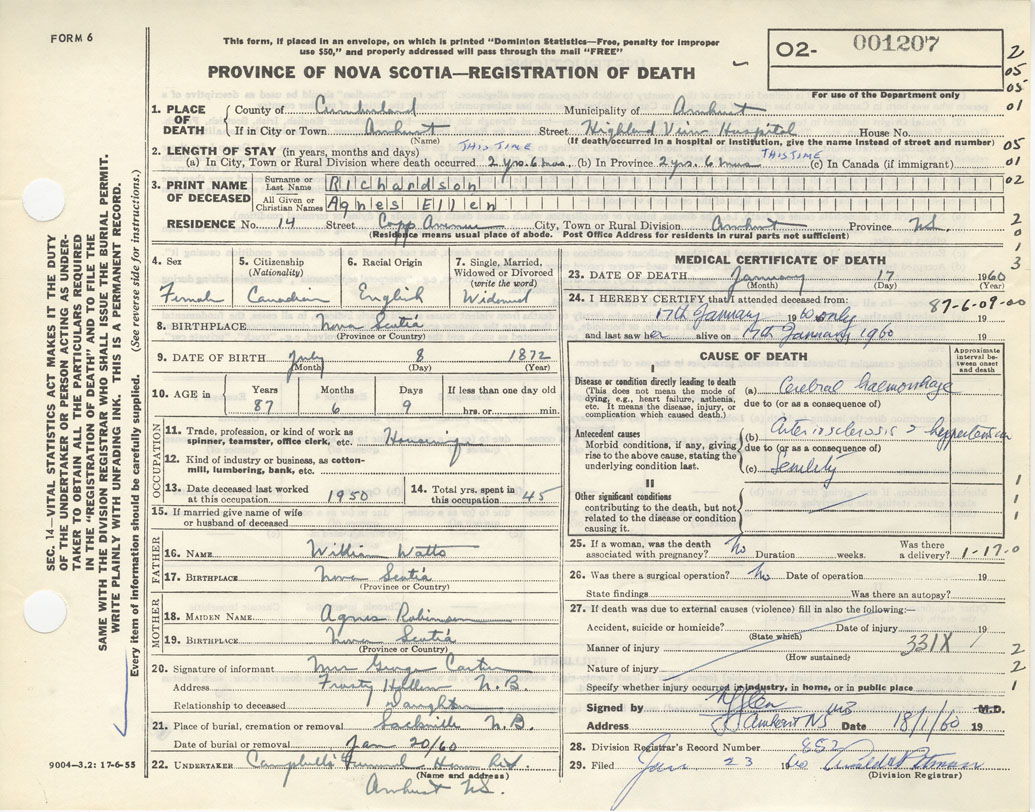 FORM 6
This form, if placed in an envelope, on which is printed "Dominion Statistics—Free, penalty for improper
use $50," and properly addressed will pass through the mail "FREE"
PROVINCE OF NOVA SCOTIA—REGISTRATION OF DEATH
02- 001207
For use of the Department only
2
05
05
01
05
01
02
2
0
1
3
SEC. 14—VITAL STATISTICS ACT MAKES IT THE DUTY
OF THE UNDERTAKER OR PERSON ACTING AS UNDER-
TAKER TO OBTAIN ALL THE PARTICULARS REQUIRED
IN THE "REGISTRATION OF DEATH" AND TO FILE THE
SAME WITH THE DIVISION REGISTRAR WHO SHALL ISSUE THE BURIAL PERMIT.
WRITE PLAINLY WITH UNFADING INK. THIS IS A PERMANENT RECORD.
Every item of information should be carefully supplied. (See reverse side for instructions.)
1. PLACE OF DEATH
County of Cumberland Municipality of Amherst
If in City or Town Amherst Street Highland View Hospital House No.
(Name) (If death occurred in a hospital or institution, give the name instead of street and number)
2. LENGTH OF STAY (in years, months and days) THIS TIME THIS TIME
(a) In City, Town or Rural Division where death occurred 2 yrs. 6 mos. (b) In Province 2 yrs. 6 mos (c) In Canada (if immigrant)
3. PRINT NAME OF DECEASED
Surname or Last Name Richardson
All Given or Christian Names Agnes Ellen
RESIDENCE No. 14 Street Copp Avenue City, Town or Rural Division Amherst Province N.S.
(Residence means usual place of abode. Post Office Address for residents in rural parts not sufficient)
4. Sex Female
5. Citizenship (Nationality) Canadian
6. Racial Origin English
7. Single, Married, Widowed or Divorced (write the word) Widowed
8. BIRTHPLACE Nova Scotia
(Province or Country)
9. DATE OF BIRTH July 8 1872
(Month) (Day) (Year)
10. AGE in Years Months Days If less than one day old
87 6 9 hrs. or min.
OCCUPATION
11. Trade, profession, or kind of work as spinner, teamster, office clerk, etc. Housewife
12. Kind of industry or business, as cotton-mill, lumbering, bank, etc.
13. Date deceased last worked at this occupation 1950
14. Total yrs. spent in this occupation 45
15. If married give name of wife or husband of deceased
FATHER
16. NAME William Watts
17. BIRTHPLACE Nova Scotia
(Province or Country)
MOTHER
18. MAIDEN NAME Agnes Robinson
19. BIRTHPLACE Nova Scotia
(Province or Country)
20. Signature of informant Mrs George Carter
Address Frosty Hollow N.B.
Relationship to deceased Daughter
21. Place of burial, cremation or removal Sackville N.B.
Date of burial or removal Jan 20/60
22. UNDERTAKER Campbell's Funeral Home Ltd.
(Name and address)
Amherst N.S.
9004—3.2: 17-6-55
MEDICAL CERTIFICATE OF DEATH
23. DATE OF DEATH January 17 1960
(Month) (Day)
24. I HEREBY CERTIFY that I attended deceased from: 87-6-09-00
17th January 1960 only 19
and last saw her alive on 17th January 1960 19
CAUSE OF DEATH
Approximate interval between onset and death
I
Disease or condition directly leading to death
(This does not mean the mode of dying, e.g., heart failure, asthenia, etc. It means the disease, injury, or complication which caused death.)
(a) Cerebral haemorrhage
due to (or as a consequence of)
Antecedent causes
Morbid conditions, if any, giving rise to the above cause, stating the underlying condition last.
(b) Arteriosclerosis & hypertension
due to (or as a consequence of)
(c) Senility
II
Other significant conditions
contributing to the death, but not related to the disease or condition causing it.
1
1
1
25. If a woman, was the death associated with pregnancy? no Duration weeks. Was there a delivery? 1-17-0
26. Was there a surgical operation? no Date of operation 19
State findings Was there an autopsy?
27. If death was due to external causes (violence) fill in also the following:—
Accident, suicide or homicide? Date of injury 19
(State which)
Manner of injury 331X
(How sustained)
Nature of injury
Specify whether injury occurred in industry, in home, or in public place
2
2
1
Signed by MB M.D.
Address Amherst NS Date 18/1/60 19
28. Division Registrar's Record Number 852
29. Filed Jan 23 1960
(Division Registrar)